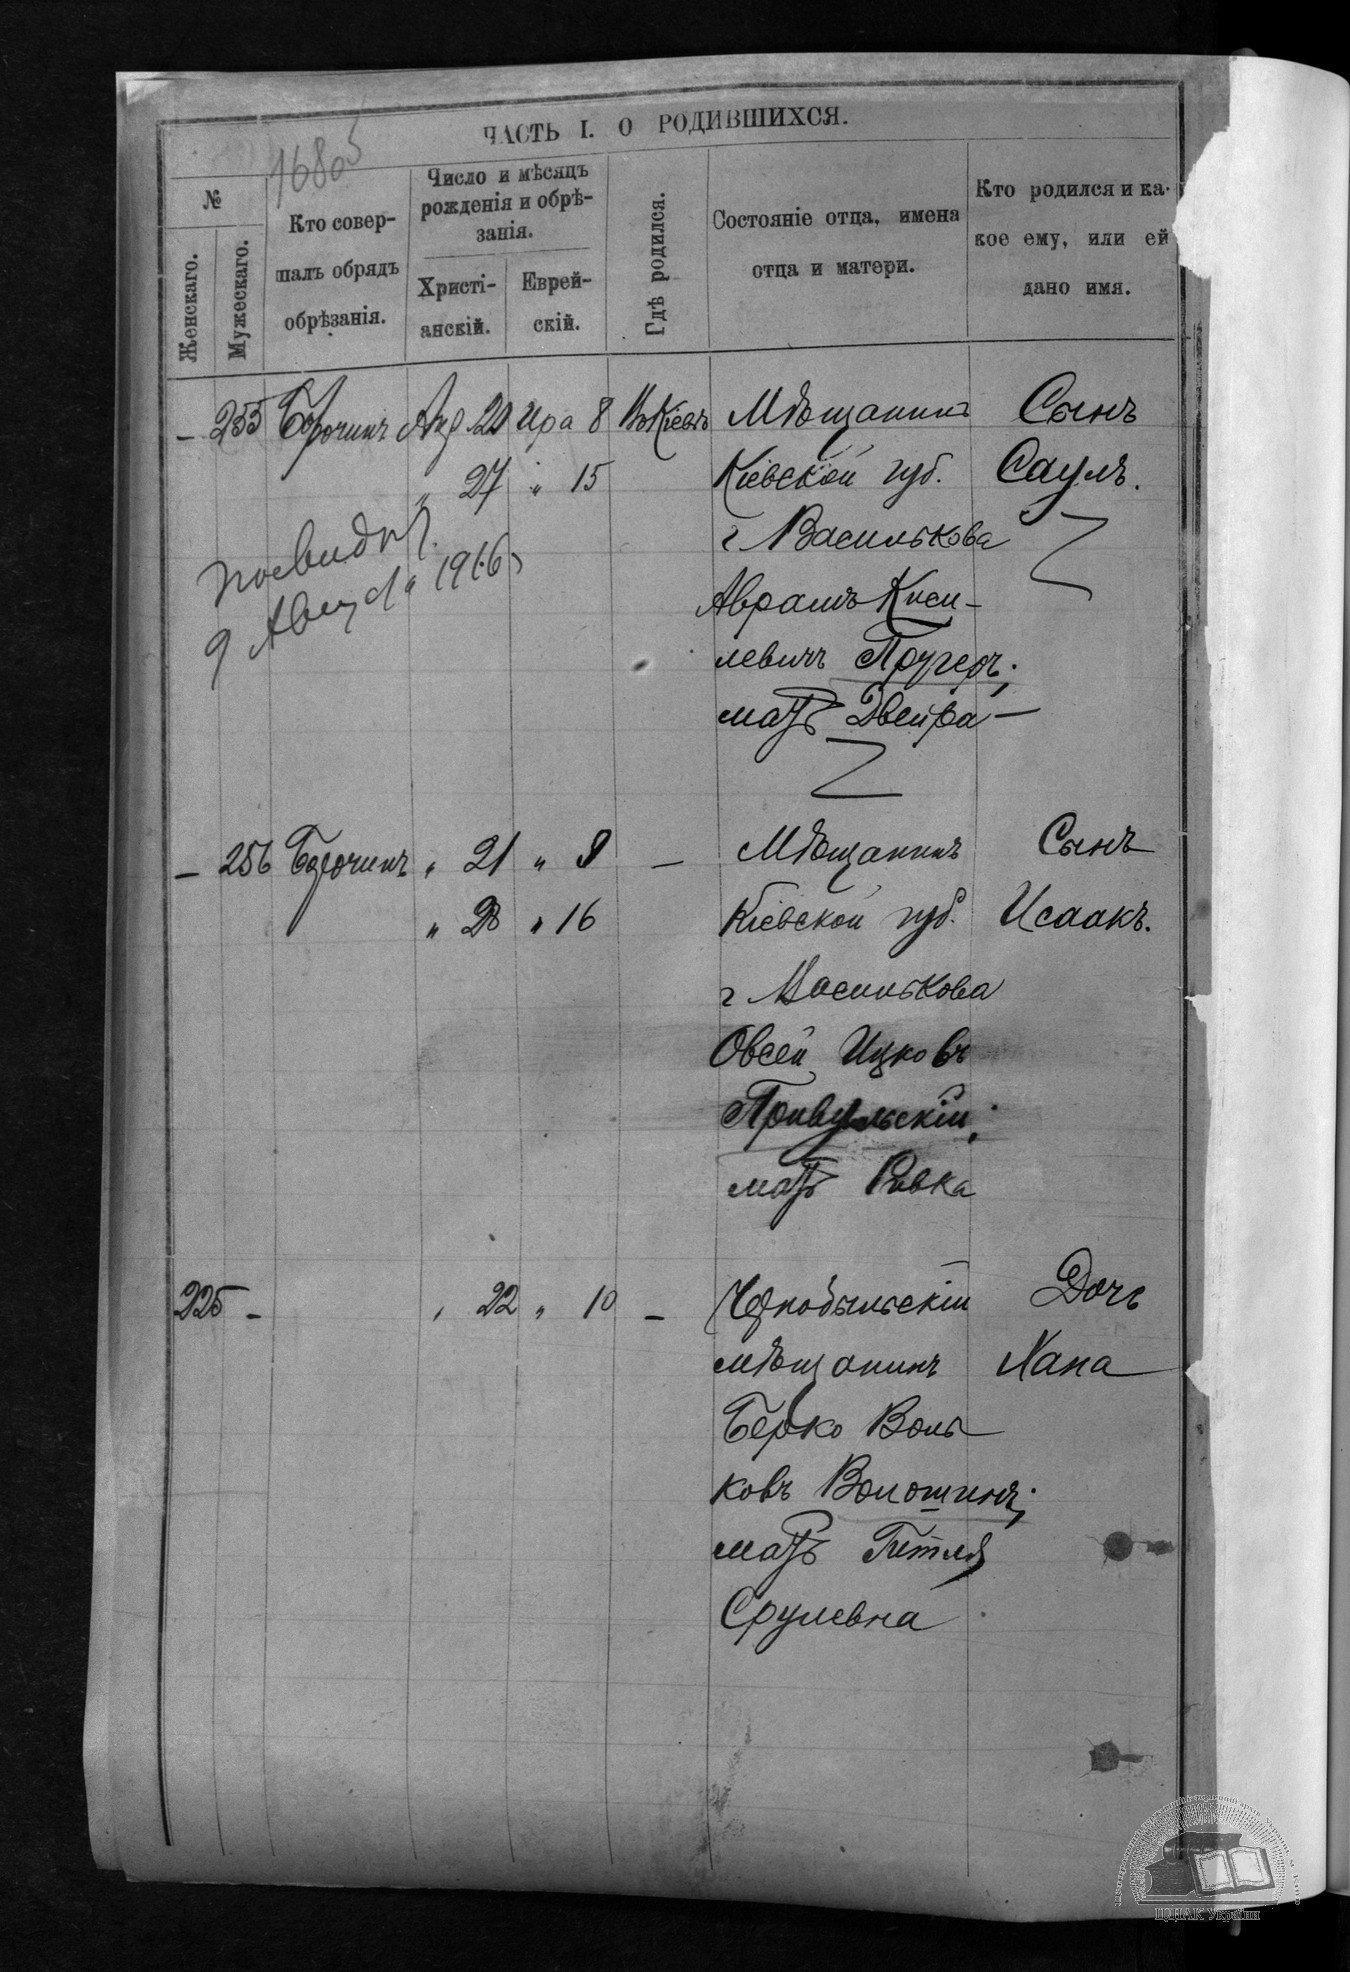 ЧАСТЬ I. О РОДИВШИХСЯ.
16805
№
Женскаго.
Мужескаго.
Кто совер-
шалъ обрядъ
обрѣзанія.
Число и мѣсяцъ
рожденія и обрѣ-
занія.
Христі-
анскій.
Еврей-
скій.
Гдѣ родился.
Состояніе отца, имена
отца и матери.
Кто родился и ка-
кое ему, или ей
дано имя.
– 255 Борочинъ Апр 20 Ира 8 Въ Кіевѣ Мѣщанинъ Сынъ
„ 27 „ 15 Кіевской губ. Саулъ.
г Василькова
9 Августа 1916
Аврамъ Киси-
левичъ Пругеръ;
мать Двейра –
– 256 Борочинъ „ 21 „ 9 – Мѣщанинъ Сынъ
„ 28 „ 16 Кіевской губ. Исаакъ.
г Василькова
Овсей Ицковъ
мать Ривка
225 – „ 22 „ 10 – Чернобыльскій Дочь
мѣщанинъ Хана
Берко Воль
ковъ Волошинъ;
мать Гитля
Срулевна
ЦДІАК України